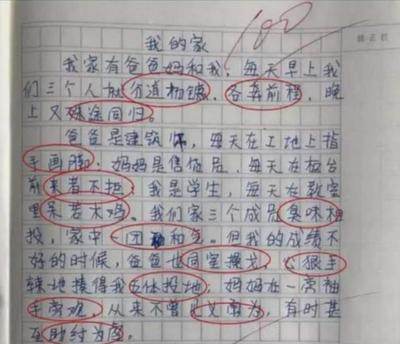 100
我的家
我家有爸爸妈和我,每天早上我
们三个人就分道扬镳,各奔前程,晚
上又殊途同归。
爸爸是建筑师,每天在工地上指
手画脚,妈妈是售货员,每天在柜台
前来者不拒,我是学生,每天在教室
里呆若木鸡。我们家三个成员臭味相
投,家中一团和气。但我的成绩不
好的时候,爸爸也同室操戈,心狠手
辣地揍得我五体投地,妈妈在一旁袖
手旁观,从来不曾见义勇为,有时甚
至助纣为虐。